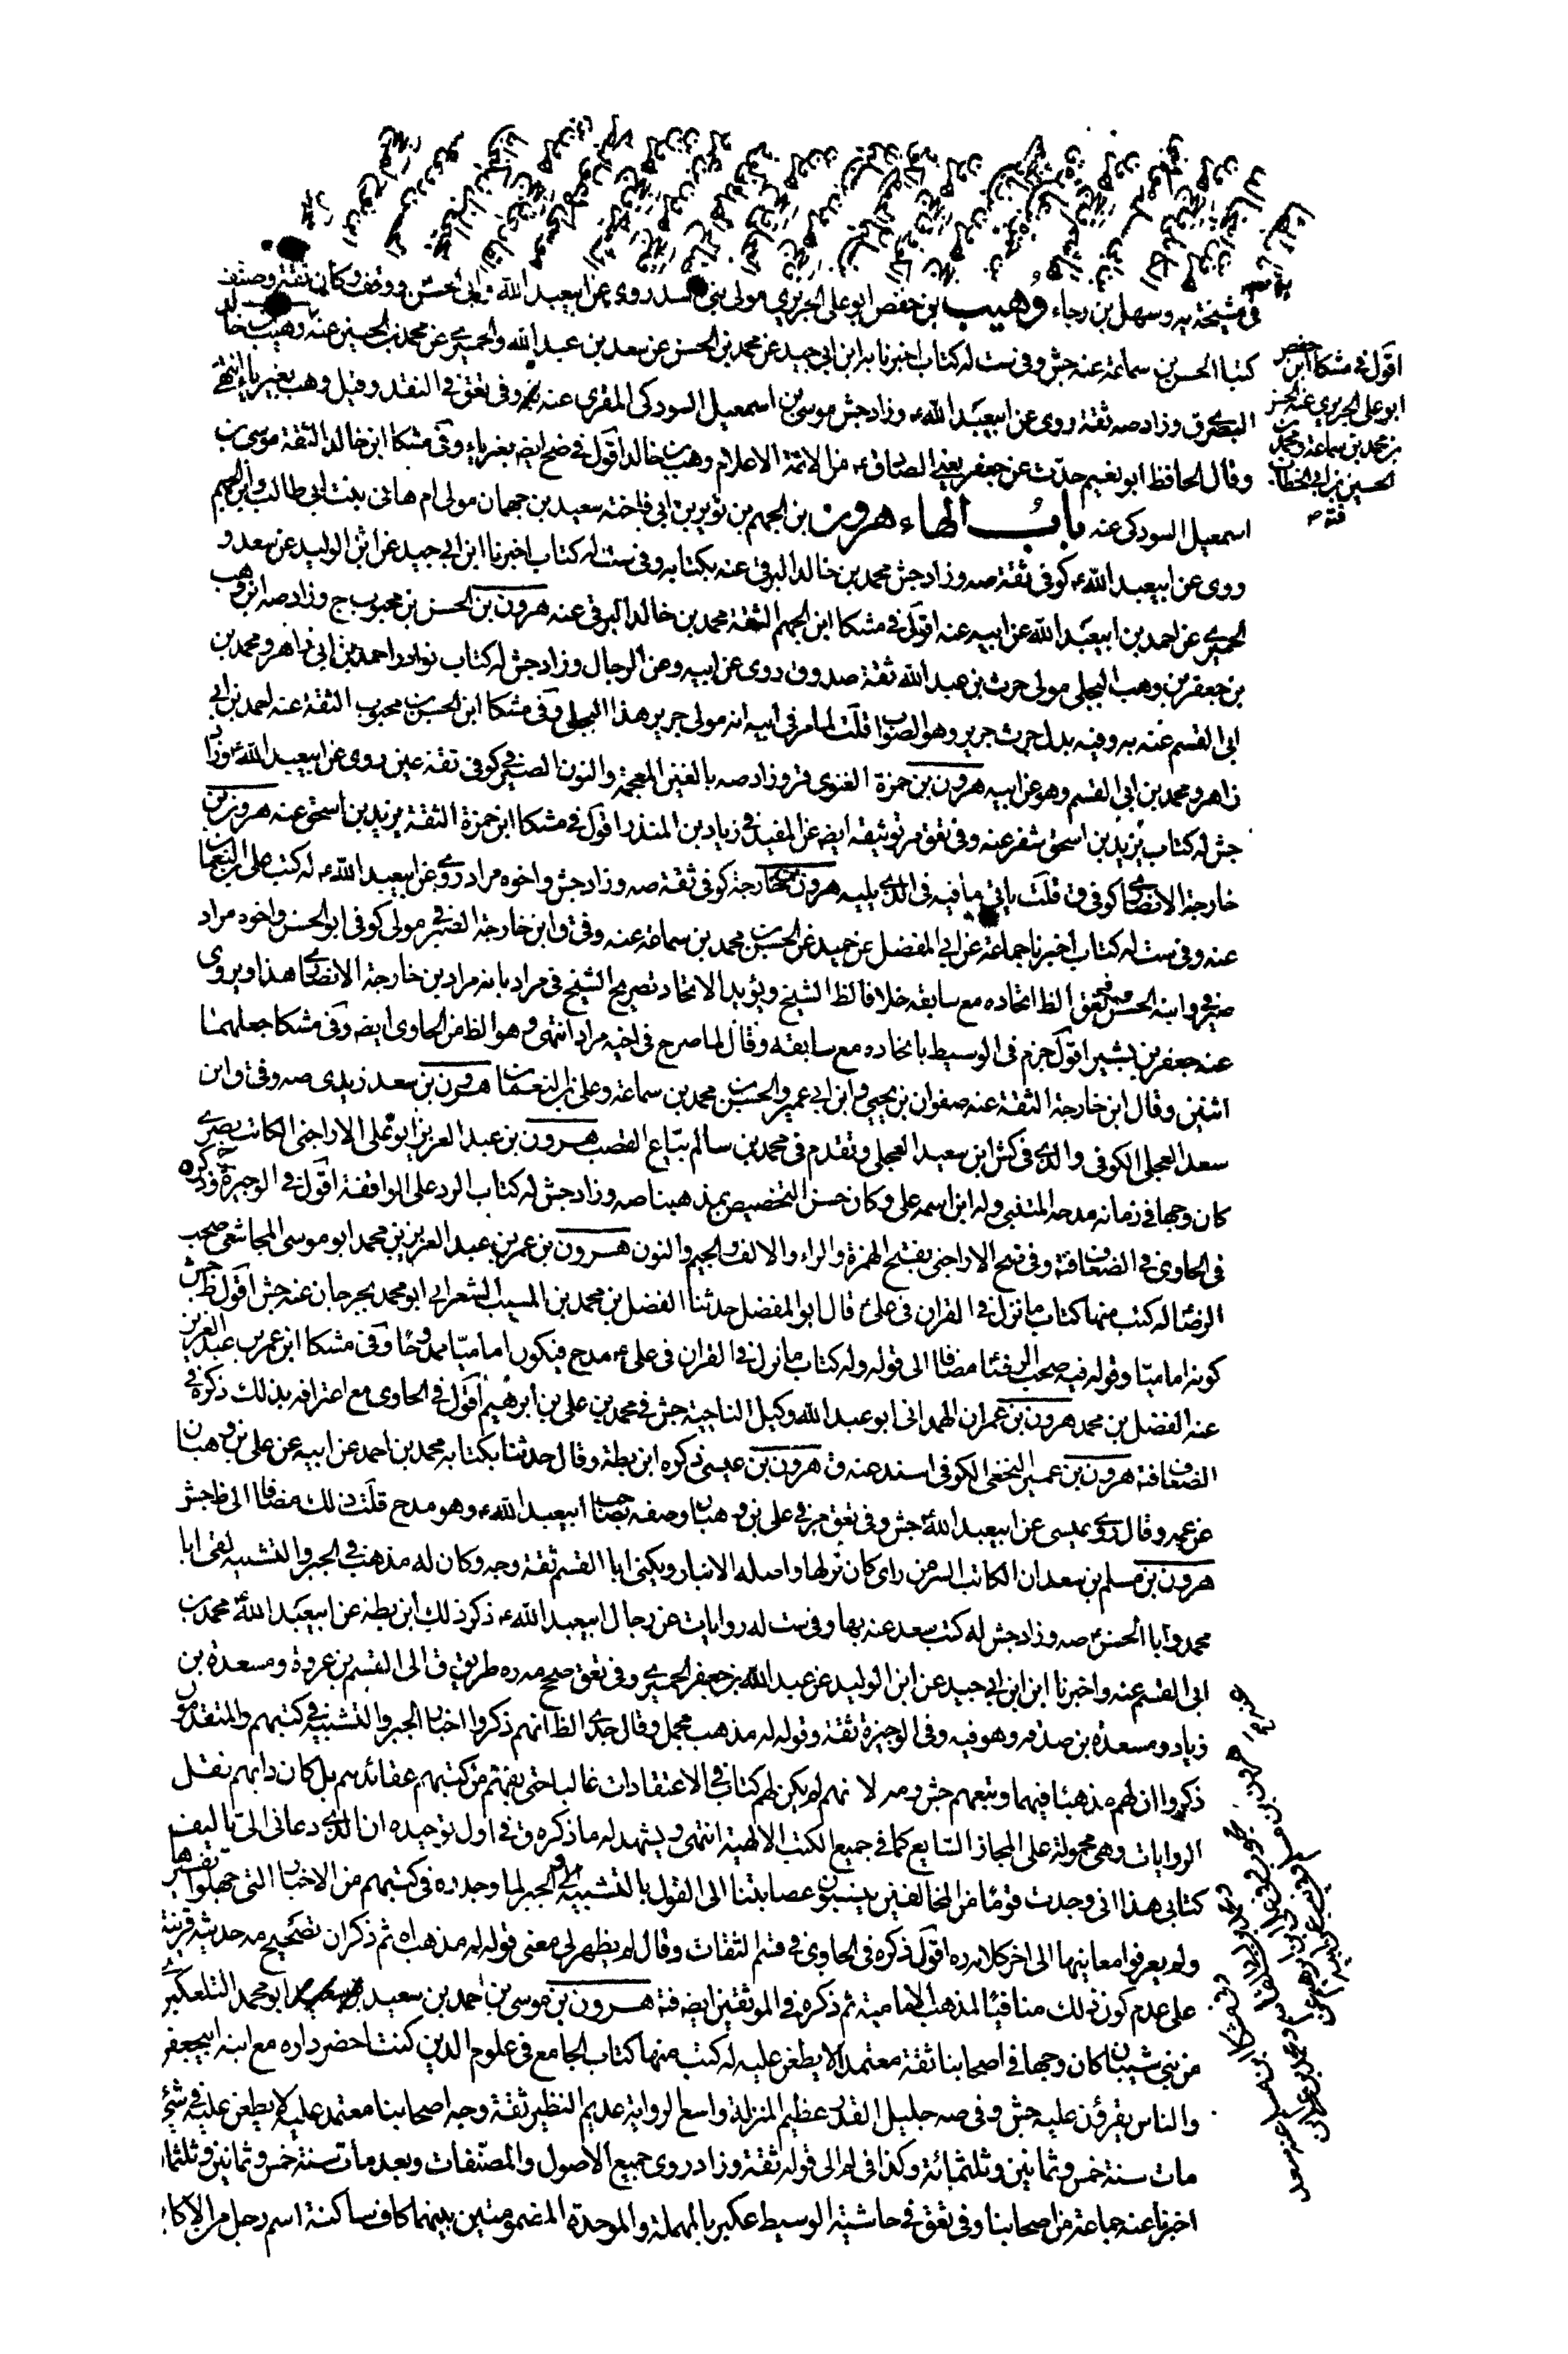 في مشيخته يه وسهل بن رجاء وهيب بن حفص ابو علي الجريري مولى بني اسد روى عن ابيعبد الله و ابي الحسن ووقف وكان ثقة وصنف
كتبا الحسن بن سماعة عنه جش وفي ست له كتاب اخبرنا به ابن ابي جيد عن محمد بن الحسن عن سعد بن عبد الله والحميري عن محمد بن الحسين عنه وهيب بن خالد
البصري ق وزاد صه ثقة روى عن ابيعبد الله ع وزاد جش موسى بن اسمعيل السودكي المقري عنه به وفي تعق في النقد وقيل وهب بغير ياء انتهى
وقال الحافظ ابو نعيم حدث عن جعفر يعني الصادق ع من الائمة الاعلام وهيب بن خالد اقول في ضح ايضه بغير ياء وفي مشكا ابن خالد الثقة موسى بن
اسمعيل السودكي عنه باب الهاء هرون بن الجهم بن ثوير بن ابي فاخته سعيد بن جهمان مولى ام هاني بنت ابي طالب وابن الجهم
روى عن ابيعبد الله ع كوفي ثقة صه وزاد جش محمد بن خالد البرقي عنه بكتابه وفي ست له كتاب اخبرنا ابن ابي جيد عن ابن الوليد عن سعد و
الحميري عن احمد بن ابيعبد الله عن ابيه عنه اقول في مشكا ابن الجهم الثقة محمد بن خالد البرقي عنه هرون بن الحسن بن محبوب ج وزاد صه ابن وهب
بن جعفر بن وهب البجلي مولى حرث بن عبد الله ثقة صدوق روى عن ابيه وعن الرجال وزاد جش له كتاب نوادر احمد بن ابي زاهر ومحمد بن
ابي القسم عنه به وفيه بدل حرث جرير وهو الصواب قلت لما مر في ابيه انه مولى جرير هذا البجلي وفي مشكا ابن الحسن بن محبوب الثقة عنه احمد بن ابي
زاهر ومحمد بن ابي القسم وهو عن ابيه هرون بن حمزة الغنوي قر وزاد صه بالغين المعجمة والنون الصيرفي كوفي ثقة عين روى عن ابيعبد الله ع وزاد
جش له كتاب يزيد بن اسحق شغر عنه وفي تعق مر توثيقه ايضه عن المفيد في زياد بن المنذر اقول في مشكا ابن حمزة الثقة يزيد بن اسحق عنه هرون بن
خارجة الانصاري كوفي ق قلت ياتي ما فيه في الذي يليه هرون بن خارجة كوفي ثقة صه وزاد جش واخوه مراد روى عن ابيعبد الله ع له كتب علي بن النعمان
عنه وفي ست له كتاب اخبرنا جماعة عن ابي المفضل عن حميد عن الحسن بن محمد بن سماعة عنه وفي ق وابن خارجة الصيرفي مولى كوفي ابو الحسن واخوه مراد
صيرفي وابنه الحسن وفي تعق الظ اتحاده مع سابقه خلافا لظ الشيخ ويؤيد الاتحاد تصريح الشيخ في مراد بانه مراد بن خارجة الانصاري هذا ويروي
عنه جعفر بن بشير اقول جزم في الوسيط باتحاده مع سابقه وقال لما صرح في اخيه مراد انتهى وهو الظ من الحاوي ايضه وفي مشكا جعلهما
اثنين وقال ابن خارجة الثقة عنه صفوان بن يحيى وابن ابي عمير والحسن بن محمد بن سماعة وعلي بن النعمان هرون بن سعد زيدي صه وفي ق وابن
سعد العجلي الكوفي والذي في كش ابن سعيد العجلي وتقدم في محمد بن سالم بياع القصب هرون بن عبد العزيز ابو علي الاراجني الكاتب بصري
كان وجها في زمانه مدحه المتنبي وله ابن اسمه علي وكان حسن التخصيص بمذهبنا صه وزاد جش له كتاب الرد على الواقفة اقول في الوجيزة ح وذكره
في الحاوي في الضعاف فتد وفي ضح الاراجني بفتح الهمزة والراء والالف والجيم والنون هرون بن عمر بن عبد العزيز بن محمد ابو موسى المجاشعي صحب
الرضا له كتب منها كتاب ما نزل في القران في علي ع قال ابو المفضل حدثنا الفضل بن محمد بن المسيب الشعراني ابو محمد بجرجان عنه جش اقول ظ جش
كونه اماميا وقوله فيه صحب الرضا مضافا الى قوله وله كتاب ما نزل في القران في علي ع مدح فيكون اماميا ممدوحا وفي مشكا ابن عمر بن عبد العزيز
عنه الفضل بن محمد هرون بن عمران الهمداني ابو عبد الله وكيل الناحية جش في محمد بن علي بن ابرهيم اقول في الحاوي مع اعترافه بذلك ذكره في
الضعاف فتد هرون بن عمير النخعي الكوفي اسند عنه ق هرون بن عيسى ذكره ابن بطة وقال حدثنا بكتابه محمد بن احمد عن ابيه عن علي بن وهبان
عن عمه وقال روى عيسى عن ابيعبد الله ع جش وفي تعق مر في علي بن وهبان وصفه بصاحب ابيعبد الله ع وهو مدح قلت ذلك مضافا الى ظ جش
هرون بن مسلم بن سعدان الكاتب السر من راي كان نزلها واصله الانبار ويكنى ابا القسم ثقة وجه وكان له مذهب في الجبر والتشبيه لقي ابا
محمد وابا الحسن ع صه وزاد جش له كتب سعد عنه بها وفي ست له روايات عن رجال ابيعبد الله ع ذكر ذلك ابن بطة عن ابيعبد الله محمد بن
ابي القسم عنه واخبرنا ابن ابي جيد عن ابن الوليد عن عبد الله بن جعفر الحميري وفي تعق صحح مه ره طريق ق الى القسم بن عروة ومسعدة بن
زياد ومسعدة بن صدقه وهو فيه وفي الوجيزة ثقة وقوله له مذهب مجمل وقال جدي الظ انهم ذكروا اخبار الجبر والتشبيه في كتبهم والمتقدمون
ذكروا ان لهم مذهبا فيهما وتبعهم جش ومه لانهم لم يكن لهم كتاب في الاعتقادات غالبا حتى يفهم من كتبهم عقائدهم بل كان دابهم نقل
الروايات وهي محمولة على المجاز الشايع كما في جميع الكتب الالهية انتهى ويشهد له ما ذكره ق في اول توحيده ان الذي دعاني الى تاليف
كتابي هذا اني وجدت قوما من المخالفين ينسبون عصابتنا الى القول بالتشبيه والجبر لما وجدوه في كتبهم من الاخبار التي جهلوا تفسيرها
ولم يعرفوا معانيها الى اخر كلامه ره اقول ذكره في الحاوي في قسم الثقات وقال لم يظهر لي معنى قوله له مذهب اه ثم ذكر ان تصحيح مه حديثه قرينة
على عدم كون ذلك منافيا لمذهب الامامية ثم ذكره في الموثقين ايضه فتد هرون بن موسى بن احمد بن سعيد بن سعيد ابو محمد التلعكبري
من بني شيبان كان وجها في اصحابنا ثقة معتمدا لا يطعن عليه له كتب منها كتاب الجامع في علوم الدين كنت احضر داره مع ابنه ابيجعفر
والناس يقرؤن عليه جش وفي صه جليل القدر عظيم المنزلة واسع الرواية عديم النظير ثقة وجه اصحابنا معتمد عليه لا يطعن عليه في شئ
مات سنة خمس وثمانين وثلثمائة وكذا في لم الى قوله ثقة وزاد روى جميع الاصول والمصنفات وبعد مات سنة خمس وثمانين وثلثما
اخبرنا عنه جماعة من اصحابنا وفي تعق في حاشية الوسيط عكبر بالمهملة والموحدة المضمومتين بينهما كاف ساكنة اسم رجل من الاكا
اقول في مشكا ابن حفص
ابو علي الجريري عنه الحسن
بن محمد بن سماعة ومحمد بن
الحسين بن ابي الخطاب